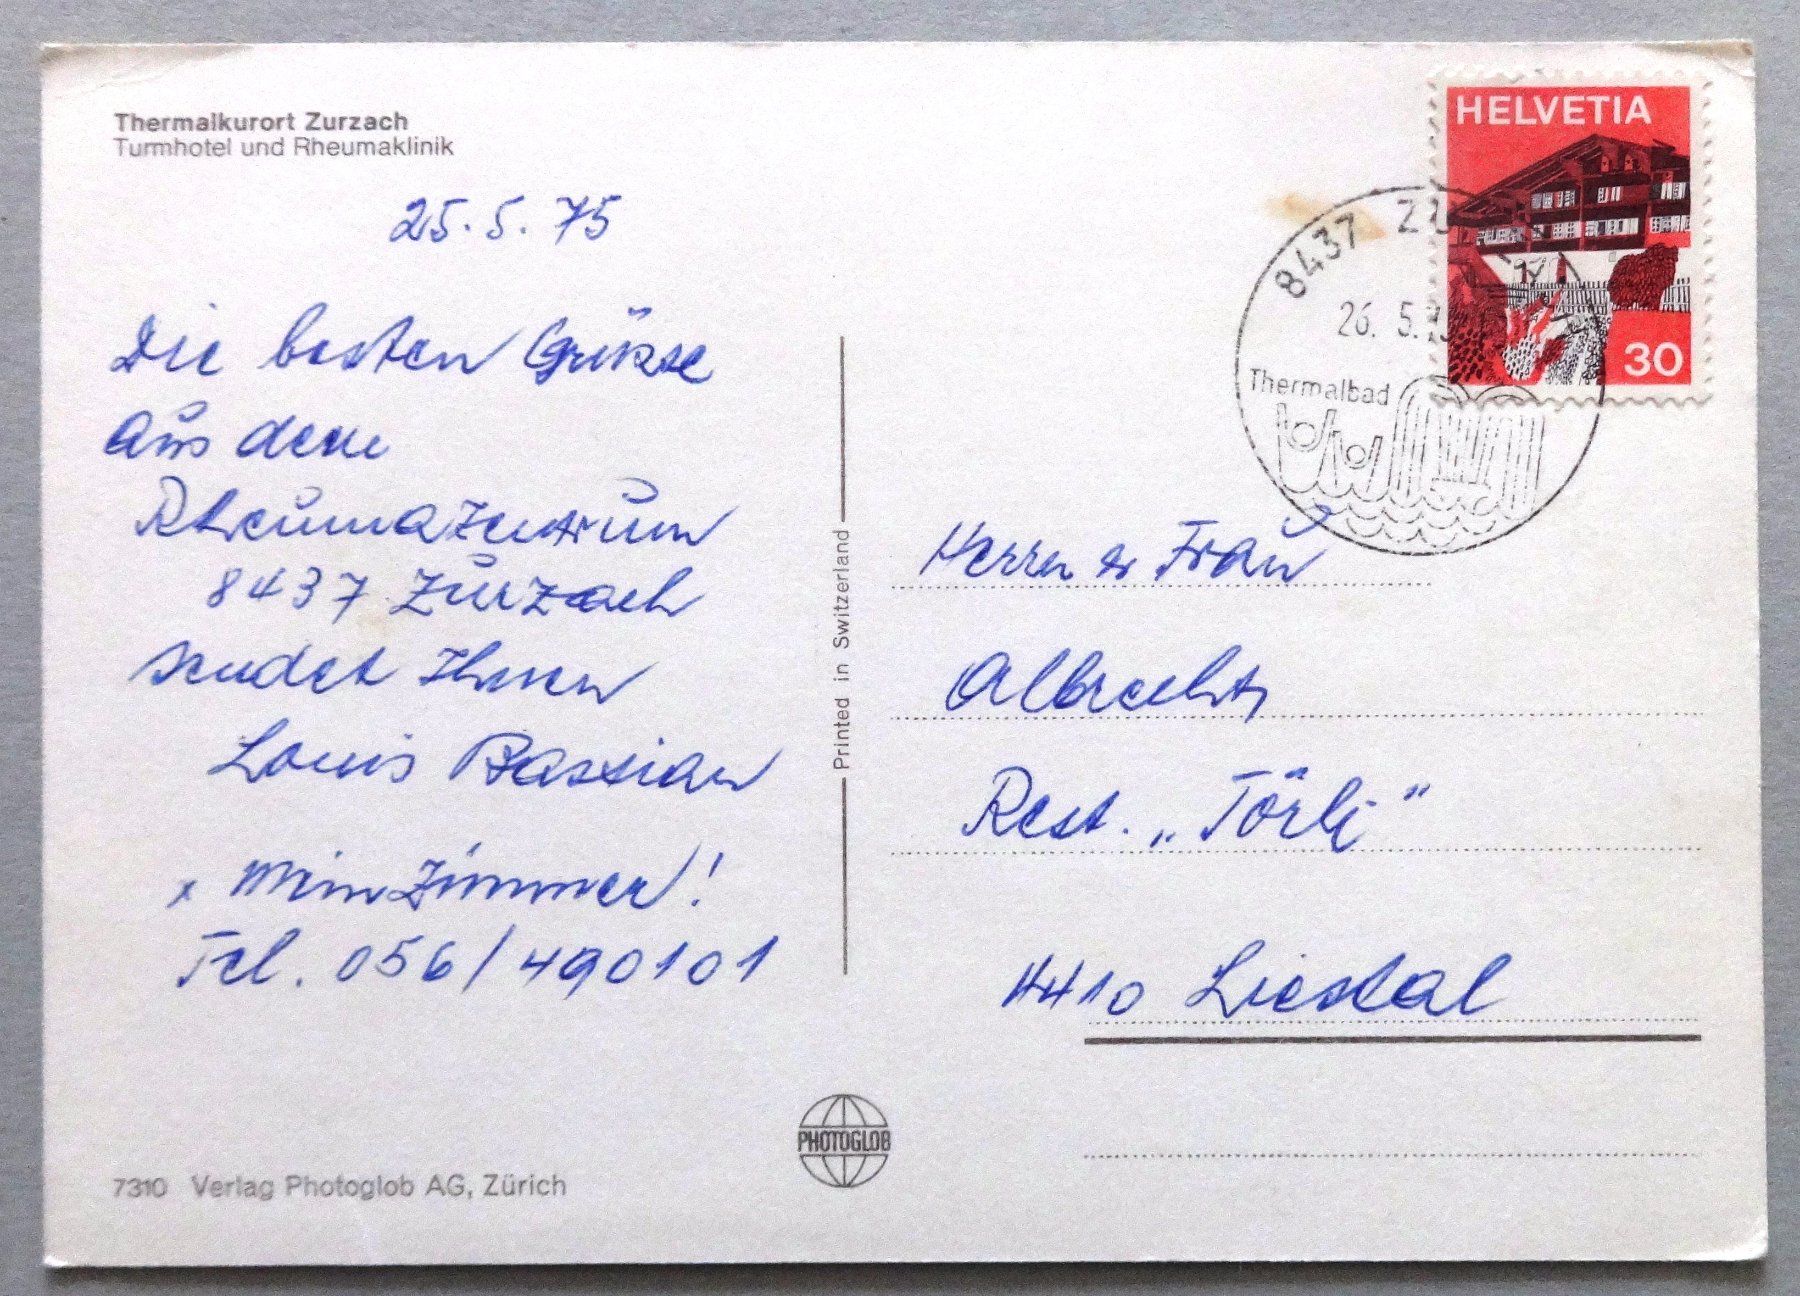 Thermalkurort Zurzach
Turmhotel und Rheumaklinik
25.5.75
Die besten Grüsse
aus dem
Rheumazentrum
8437 Zurzach
sendet Ihnen
Louis Bastian
x mein Zimmer!
Tel. 056/490101
7310 Verlag Photoglob AG, Zürich
Printed in Switzerland
PHOTOGLOB
HELVETIA
30
8437
26. 5.
Thermalbad
Herrn & Frau
Albrecht
Rest. „Törli“
4410 Liestal